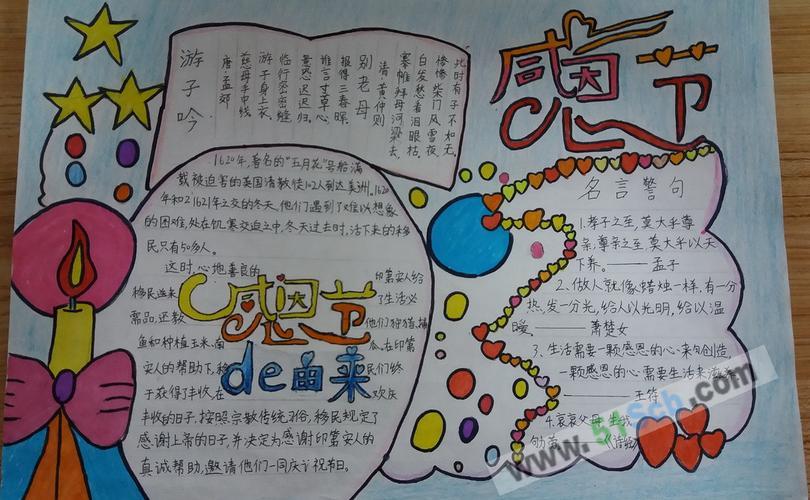 游子吟
唐·孟郊
慈母手中线
游子身上衣
临行密密缝
意恐迟迟归。
谁言寸草心
报得三春晖
别老母
清·黄仲则
搴帷拜母河梁去,
白发愁看泪眼枯
惨惨柴门风雪夜
此时有子不如无。
感恩节
1620年,著名的“五月花”号船满
载被迫害的英国清教徒102人到达美洲。1620
年和1621年之交的冬天,他们遇到了难以想象
的困难,处在饥寒交迫之中,冬天过去时,活下来的移
民只有50多人。
这时,心地善良的 印第安人给
移民送来 了生活必
需品,还教 他们狩猎,捕
鱼和种植玉米、南 瓜,在印第
安人的帮助下,移 民们终
于获得了丰收,在 欢庆
丰收的日子,按照宗教传统习俗,移民规定了
感谢上帝的日子,并决定为感谢印第安人的
真诚帮助,邀请他们一同庆祝节日。
感恩节
de由来
名言警句
1.孝子之至,莫大乎尊
亲;尊亲之至,莫大乎以天
下养。——孟子
2、做人就像蜡烛一样,有一分
热,发一分光,给人以光明,给以温
暖。——萧楚女
3、生活需要一颗感恩的心来创造,
一颗感恩的心需要生活来滋
——王符
4.哀哀父母,生我
劬
www.51sch.com